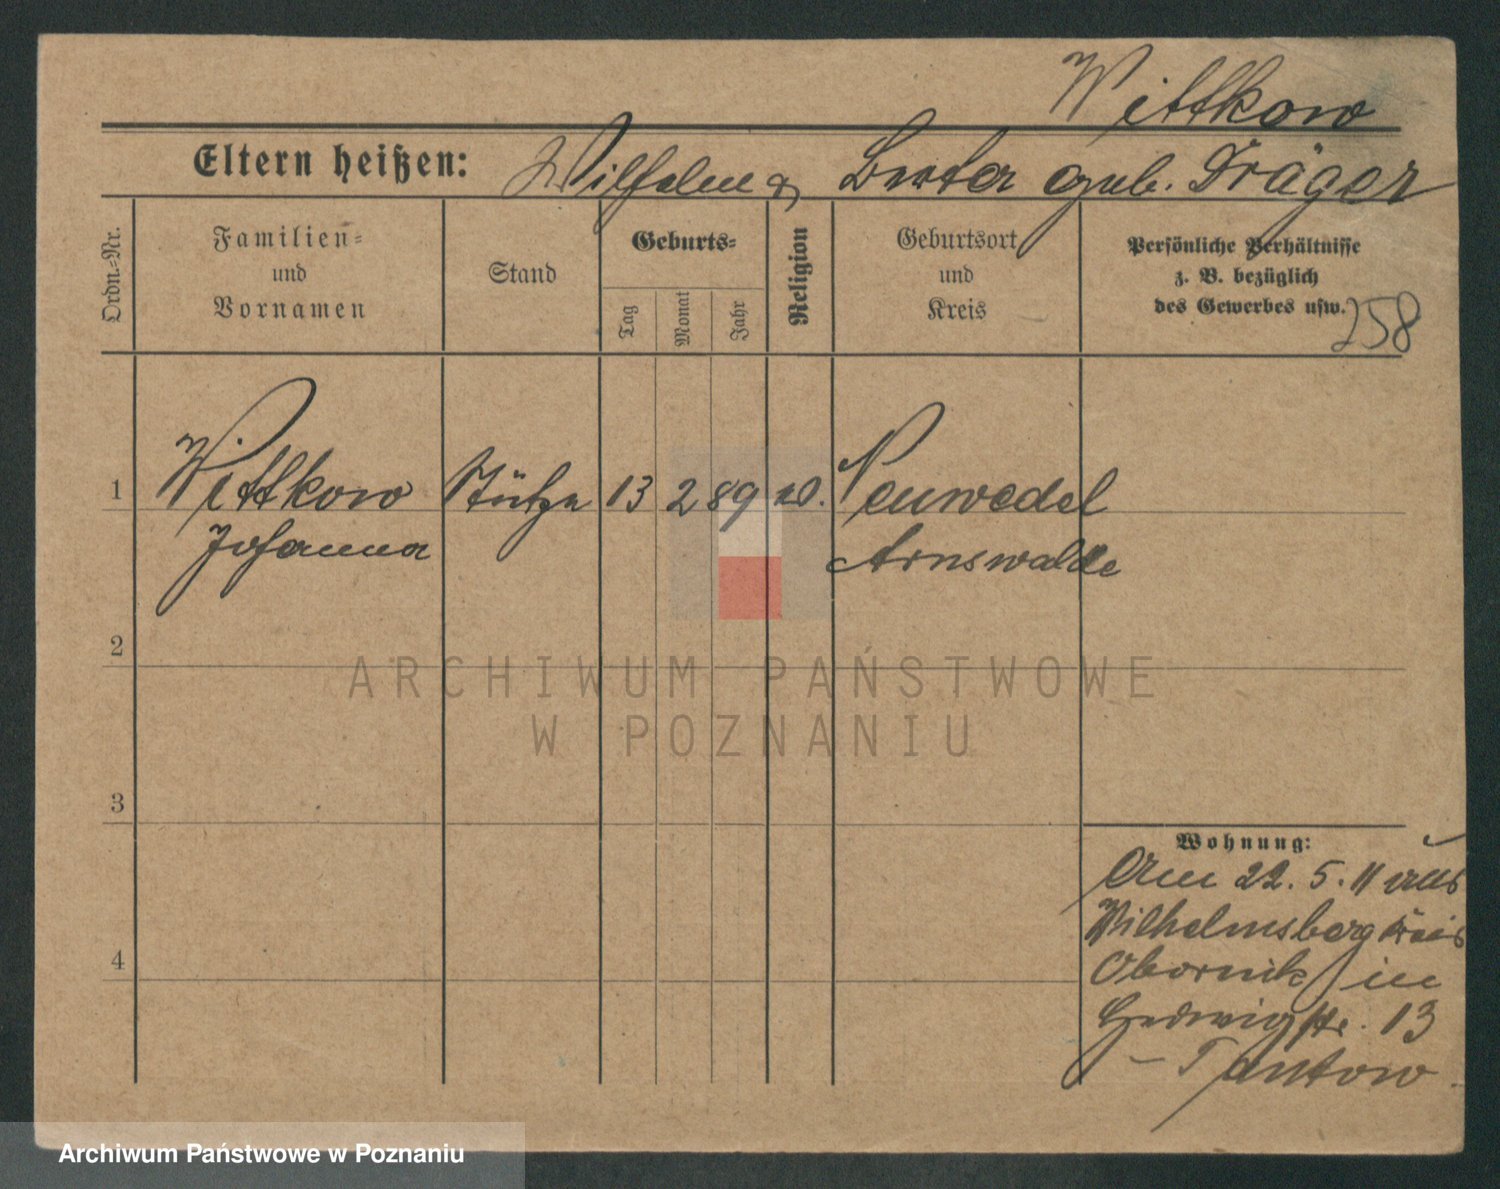 Wittkow
Eltern heißen: Wilhelm & Berta geb. Träger
Ordn.-Nr.
Familien-
und
Vornamen
Stand
Geburts-
Tag
Monat
Jahr
Religion
Geburtsort
und
Kreis
Persönliche Verhältnisse
z. B. bezüglich
des Gewerbes usw.
258
1 Wittkow Stütze 13 2 89 Neuwedel
Johanna Arnswalde
2
ARCHIWUM PAŃSTWOWE
W POZNANIU
3
Wohnung:
Am 22. 5. 11 aus
Wilhelmsberg Kreis
4
Obornik in
Hedwigstr. 13
Archiwum Państwowe w Poznaniu